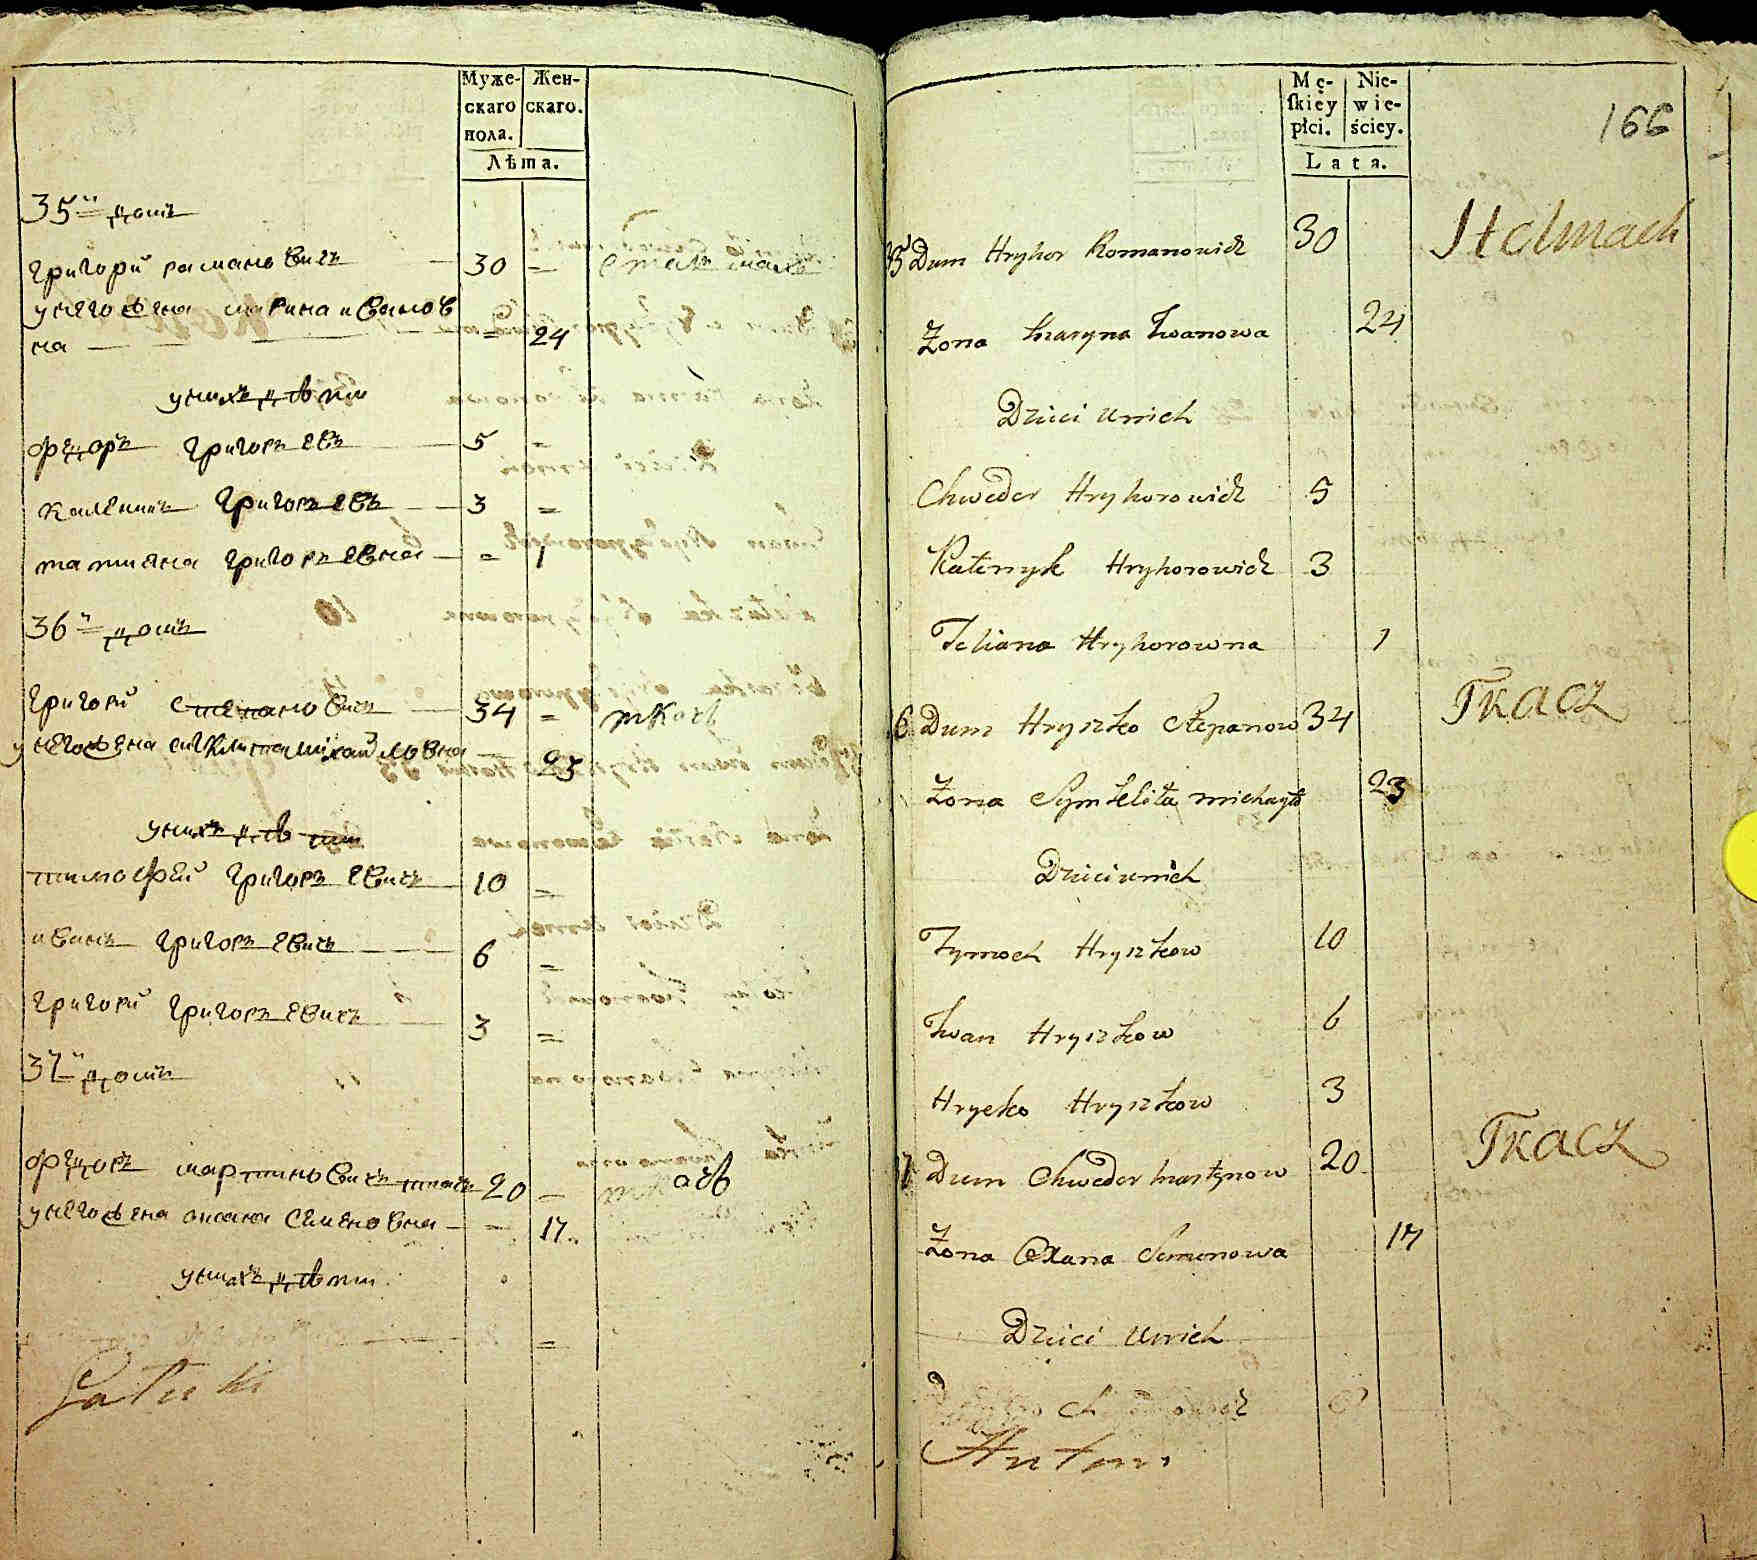 Муже-
скаго
пола.
Жен-
скаго.
Лѣта.
35й домъ
Григорий Романовичъ 30 = стелмахъ
у него жена Марина Иванов
на = 24
у нихъ дѣти
Федоръ Григорьевъ 5 =
Каленикъ Григорьевъ 3 =
Татияна Григорьевна = 1
36й домъ
Григорий Степановичъ 34 = ткачъ
у него жена Михайловна 23
у нихъ дѣти
Тимофей Григорьевичъ 10 =
Иванъ Григорьевичъ 6 =
Григорий Григорьевичъ 3 =
37й домъ
Федоръ Мартиновичъ 20 = ткачъ
у него жена Оксана Семеновна = 17
у нихъ дѣти
=
Mę-
skiey
płci.
Nie-
wie-
ściey.
Lata.
166
35 Dum Hryhor Romanowicz 30 Stelmach
Żona Maryna Iwanowa 24
Dzieci u nich
Chweder Hryhorowicz 5
Kalenyk Hryhorowicz 3
Teliana Hryhorowna 1
6 Dum Hryszko Stepanow 34 Tkacz
Żona Michayło 23
Dzieci u nich
Tymoch Hryszkow 10
Iwan Hryszkow 6
Hrycko Hryszkow 3
7 Dum Chweder Martynow 20 Tkacz
Żona Oxana Semenowa 17
Dzieci u nich
Antoni